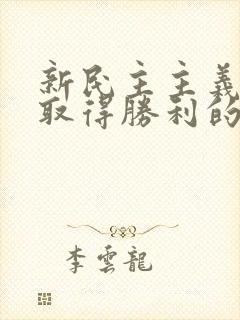 新民主主義
取得勝利的
李雲龍